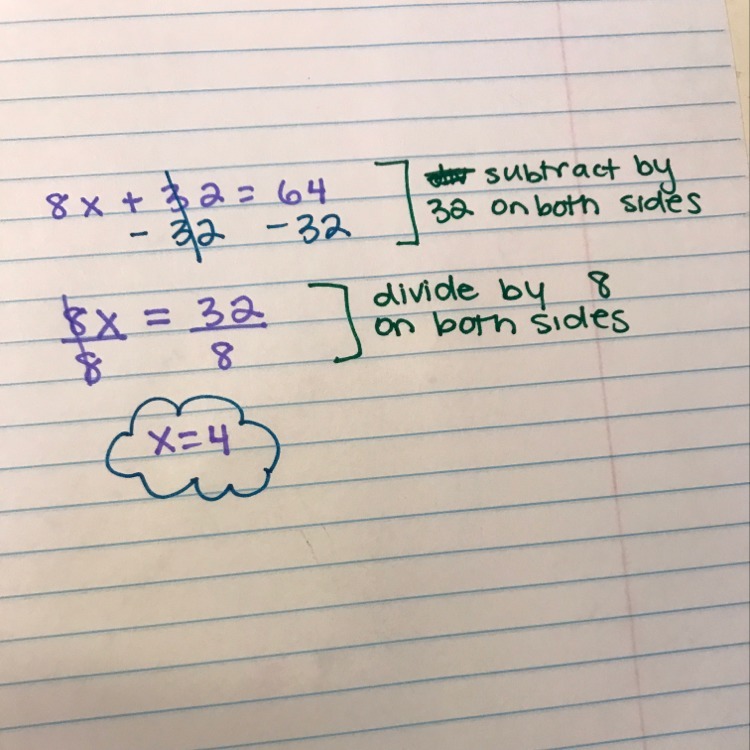 8x + 32 = 64
- 32 -32
subtract by
32 on both sides
8x = 32
8 8
divide by 8
on both sides
x=4